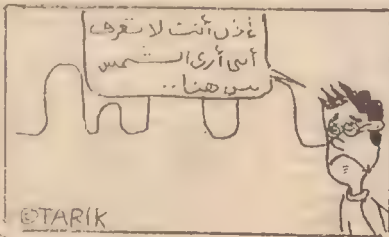 إذن أنت لا تعرف
أني أرى الشمس
من هنا..
©TARIK